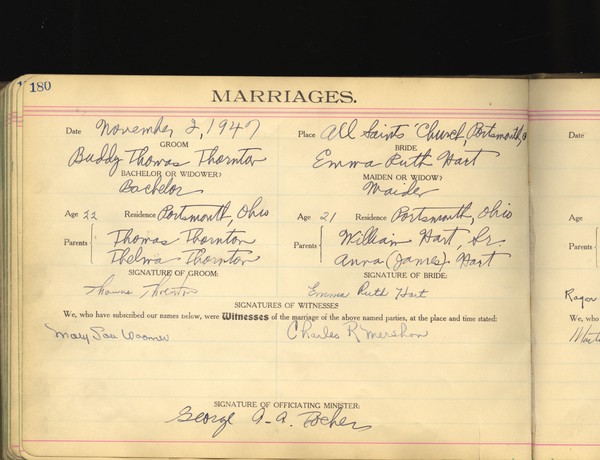 180
MARRIAGES.
Date November 2, 1947 Place All Saints' Church, Portsmouth, O
GROOM BRIDE
Buddy Thomas Thornton Emma Ruth Hart
BACHELOR OR WIDOWER? MAIDEN OR WIDOW?
Bachelor Maiden
Age 22 Residence Portsmouth, Ohio Age 21 Residence Portsmouth, Ohio
Parents Thomas Thornton William Hart, Sr.
Thelma Thornton Anna (James) Hart
SIGNATURE OF GROOM: SIGNATURE OF BRIDE:
Thomas Thornton Emma Ruth Hart
SIGNATURES OF WITNESSES
We, who have subscribed our names below, were Witnesses of the marriage of the above named parties, at the place and time stated:
Mary Sue Charles R. Mershon
SIGNATURE OF OFFICIATING MINISTER:
George A. A.
Date
Age
Parents
We, who